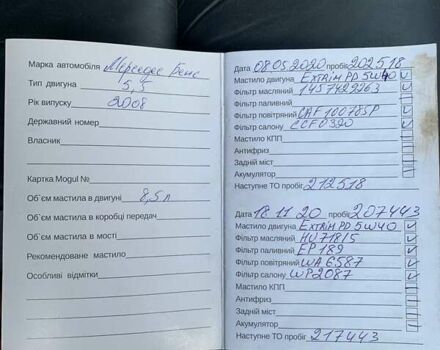 Марка автомобіля Мерседес Бенс
Тип двигуна 5,5
Рік випуску 2008
Державний номер
Власник
Картка Mogul №
Об'єм мастила в двигуні 8,5 л
Об'єм мастила в коробці передач
Об'єм мастила в мості
Рекомендоване мастило
Особливі відмітки
Дата 08 05 2020 пробіг 202518
Мастило двигуна EXTRIM PD 5W40
Фільтр масляний 1457429263
Фільтр паливний
Фільтр повітряний CAF100785P
Фільтр салону CCF0320
Мастило КПП
Антифриз
Задній міст
Акумулятор
Наступне ТО пробіг 212518
Дата 18 11 20 пробіг 207443
Мастило двигуна EXTRIM PD 5W40
Фільтр масляний HU718/5
Фільтр паливний EP189
Фільтр повітряний WA6587
Фільтр салону WP2087
Мастило КПП
Антифриз
Задній міст
Акумулятор
Наступне ТО пробіг 217443